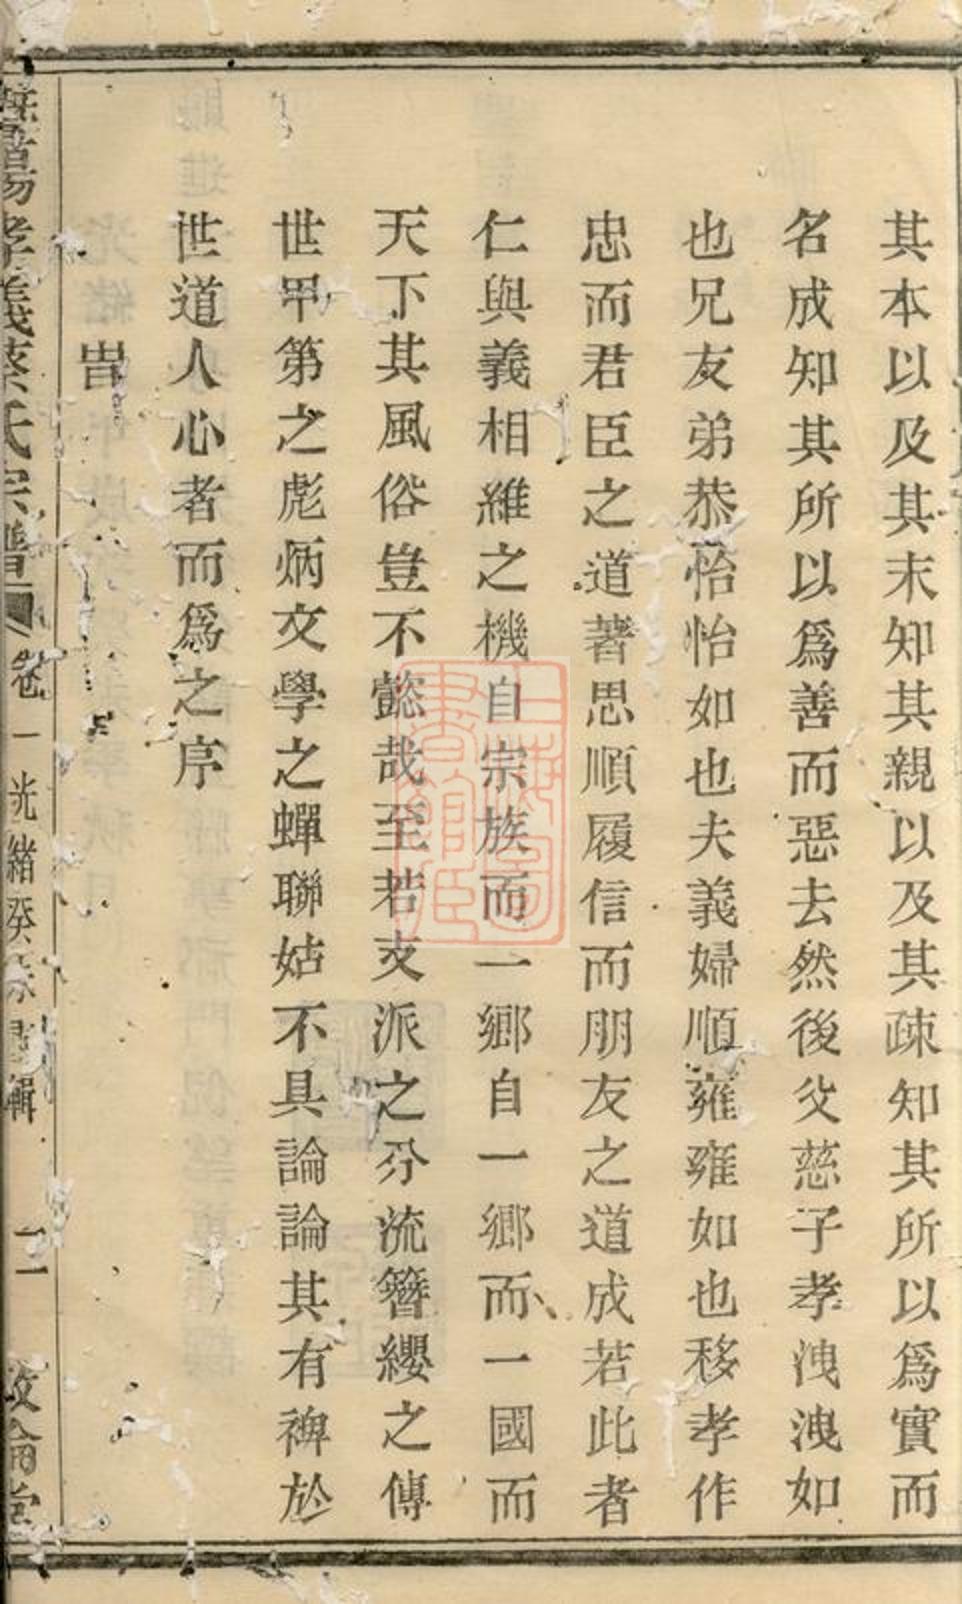 其本以及其末知其親以及其疎知其所以爲實而
名成知其所以爲善而惡去然後父慈子孝洩洩如
也兄友弟恭怡怡如也夫義婦順雍雍如也移孝作
忠而君臣之道著思順履信而朋友之道成若此者
仁與義相維之機自宗族而一鄉自一鄉而一國而
天下其風俗豈不懿哉至若支派之分流簪纓之傳
世甲第之彪炳文學之蟬聯姑不具論論其有裨於
世道人心者而爲之序
旹
陽孝義蔡氏宗譜 卷一 光緒癸 輯 二 敦倫堂
上海圖書館藏